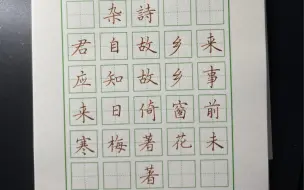 杂詩
君自故乡来
应知故乡事
来日倚窗前
寒梅著花未
著